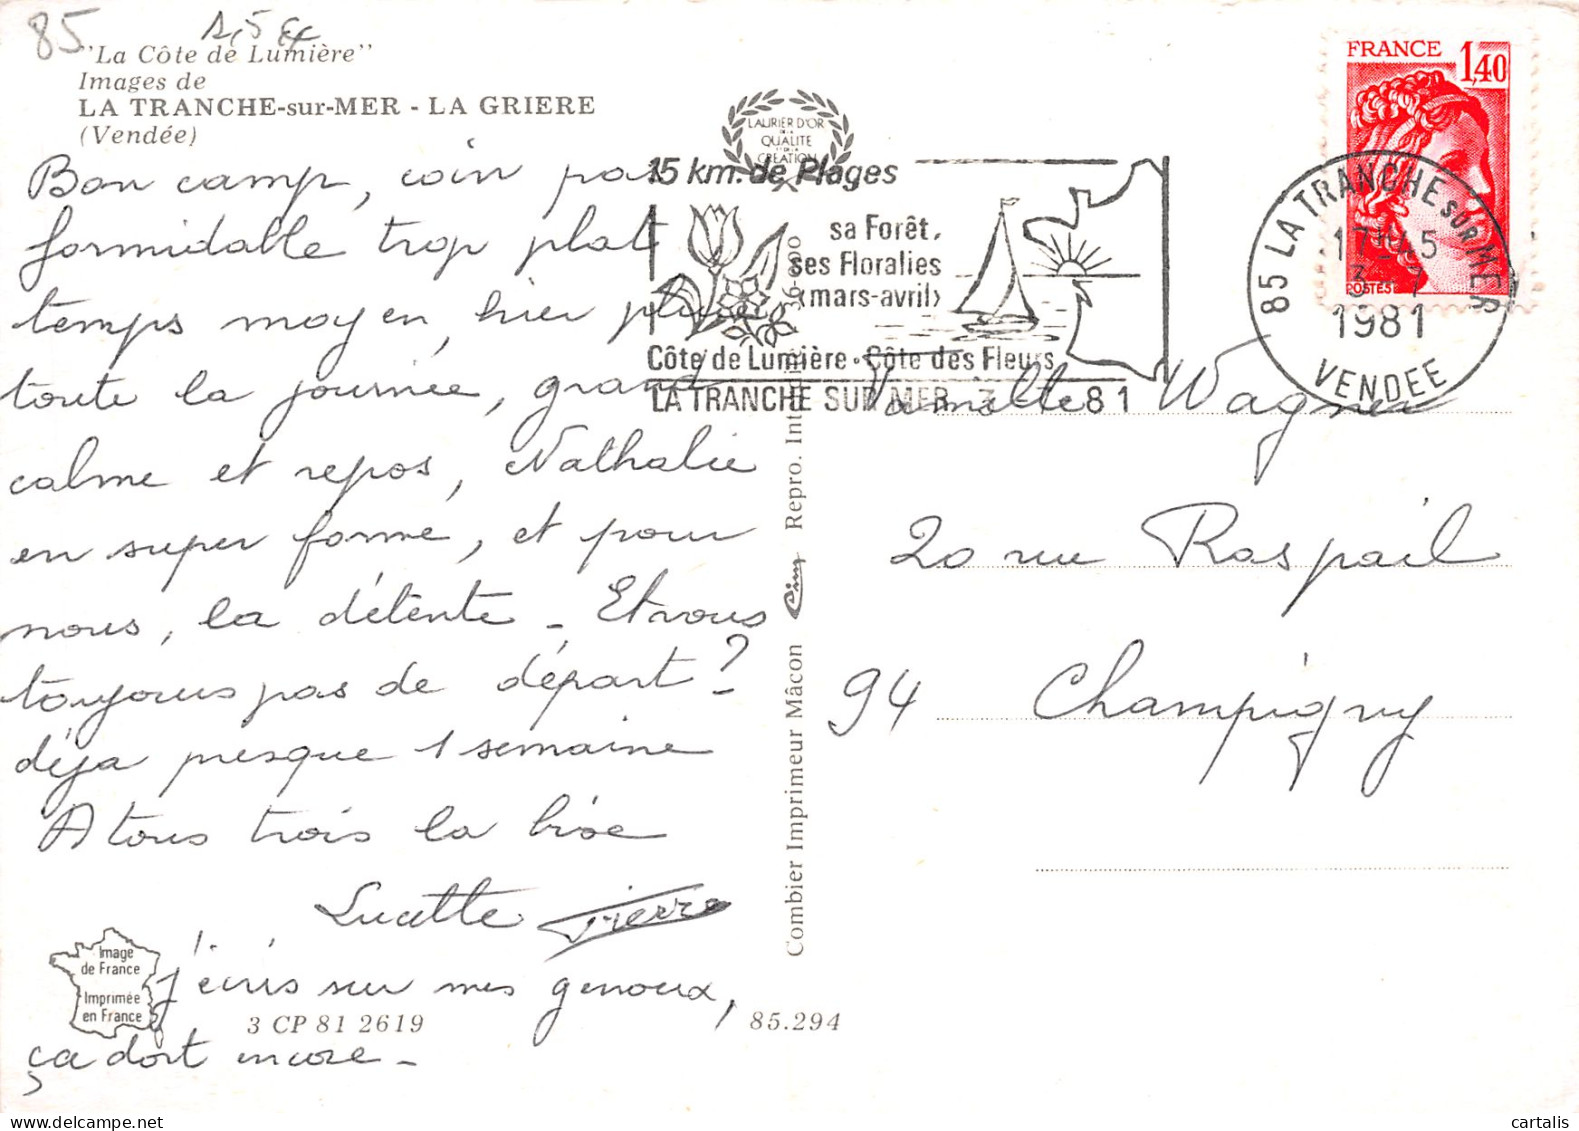 85
1,5 €
"La Côte de Lumière"
Images de
LA TRANCHE-sur-MER - LA GRIERE
(Vendée)
Bon camp, coin pas
formidable trop plat
temps moyen, hier pluie
toute la journée, grand
calme et repos, Nathalie
en super forme, et pour
nous, la détente - Et vous
toujours pas de départ?
déja presque 1 semaine
A tous trois la bise
Lucette Pierre
j'écris sur mes genoux,
ça dort encore -
Image
de France
Imprimée
en France
3 CP 81 2619
85.294
LAURIER D'OR
DE LA
QUALITE
ET DE LA
CREATION
15 km. de Plages
sa Forêt,
ses Floralies
(mars-avril)
Côte de Lumière - Côte des Fleurs
LA TRANCHE SUR MER 3 81
Combier Imprimeur Mâcon Cim Repro.
FRANCE
1,40
POSTES
85 LA TRANCHE SUR MER
17H45
3
1981
VENDEE
Famille Wagner
20 rue Raspail
94 Champigny